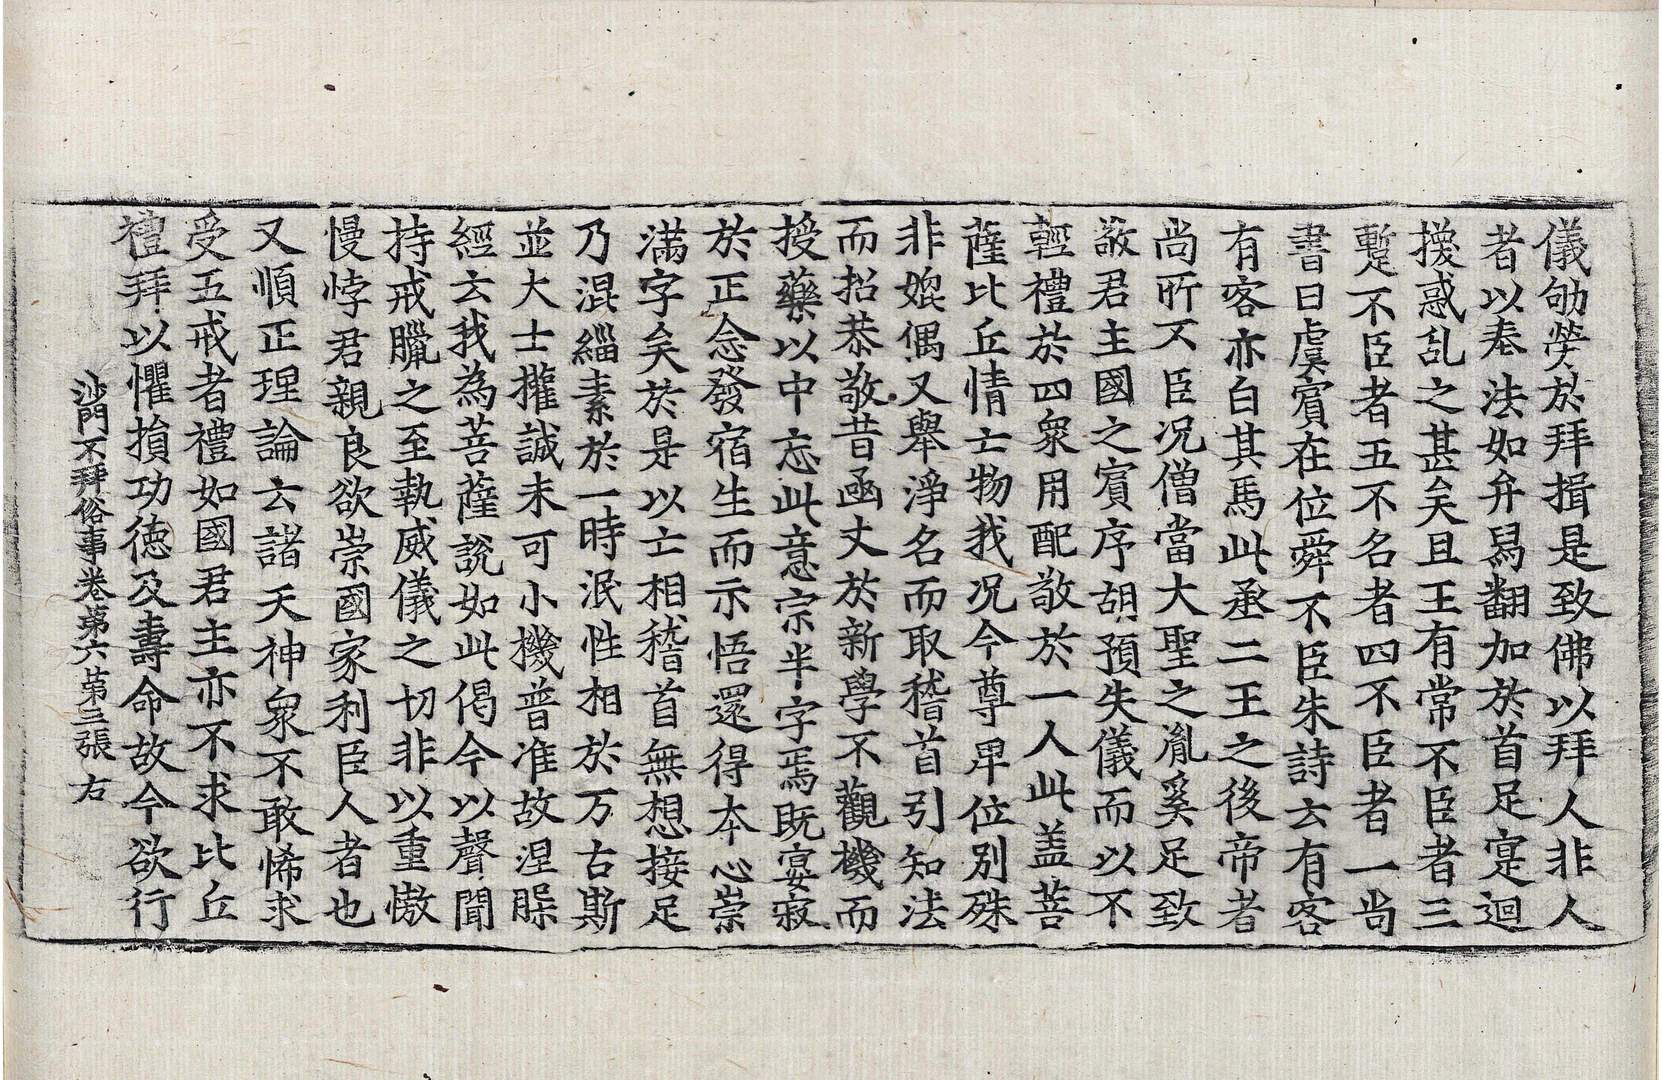 儀劬勞於拜揖是致佛以拜人非人
者以奉法如弁舄翻加於首足寔迴
擾惑乱之甚矣且王有常不臣者三
蹔不臣者五不名者四不臣者一尚
書曰虞賓在位舜不臣朱詩云有客
有客亦白其馬此丞二王之後帝者
尚所不臣况僧當大聖之胤奚足致
敬君主國之賓序胡預失儀而以不
輕禮於四衆用配敬於一人此盖菩
薩比丘情士物我况今尊卑位別殊
非媲偶又舉淨名而取稽首引知法
而招恭敬昔函丈於新學不觀機而
授藥以中忘此意宗半字焉既宴寂
於正念發宿生而示悟還得本心崇
滿字矣於是以亡相稽首無想接足
乃混緇素於一時泯性相於万古斯
並大士權誠未可小機普准故涅槃
經云我為菩薩說如此偈今以聲聞
持戒臘之至執威儀之切非以重慠
慢悖君親良欲崇國家利臣人者也
又順正理論云諸天神衆不敢悕求
受五戒者禮如國君主亦不求比丘
禮拜以懼損功德及壽命故今欲行
沙門不拜俗事卷第六 第三張 右